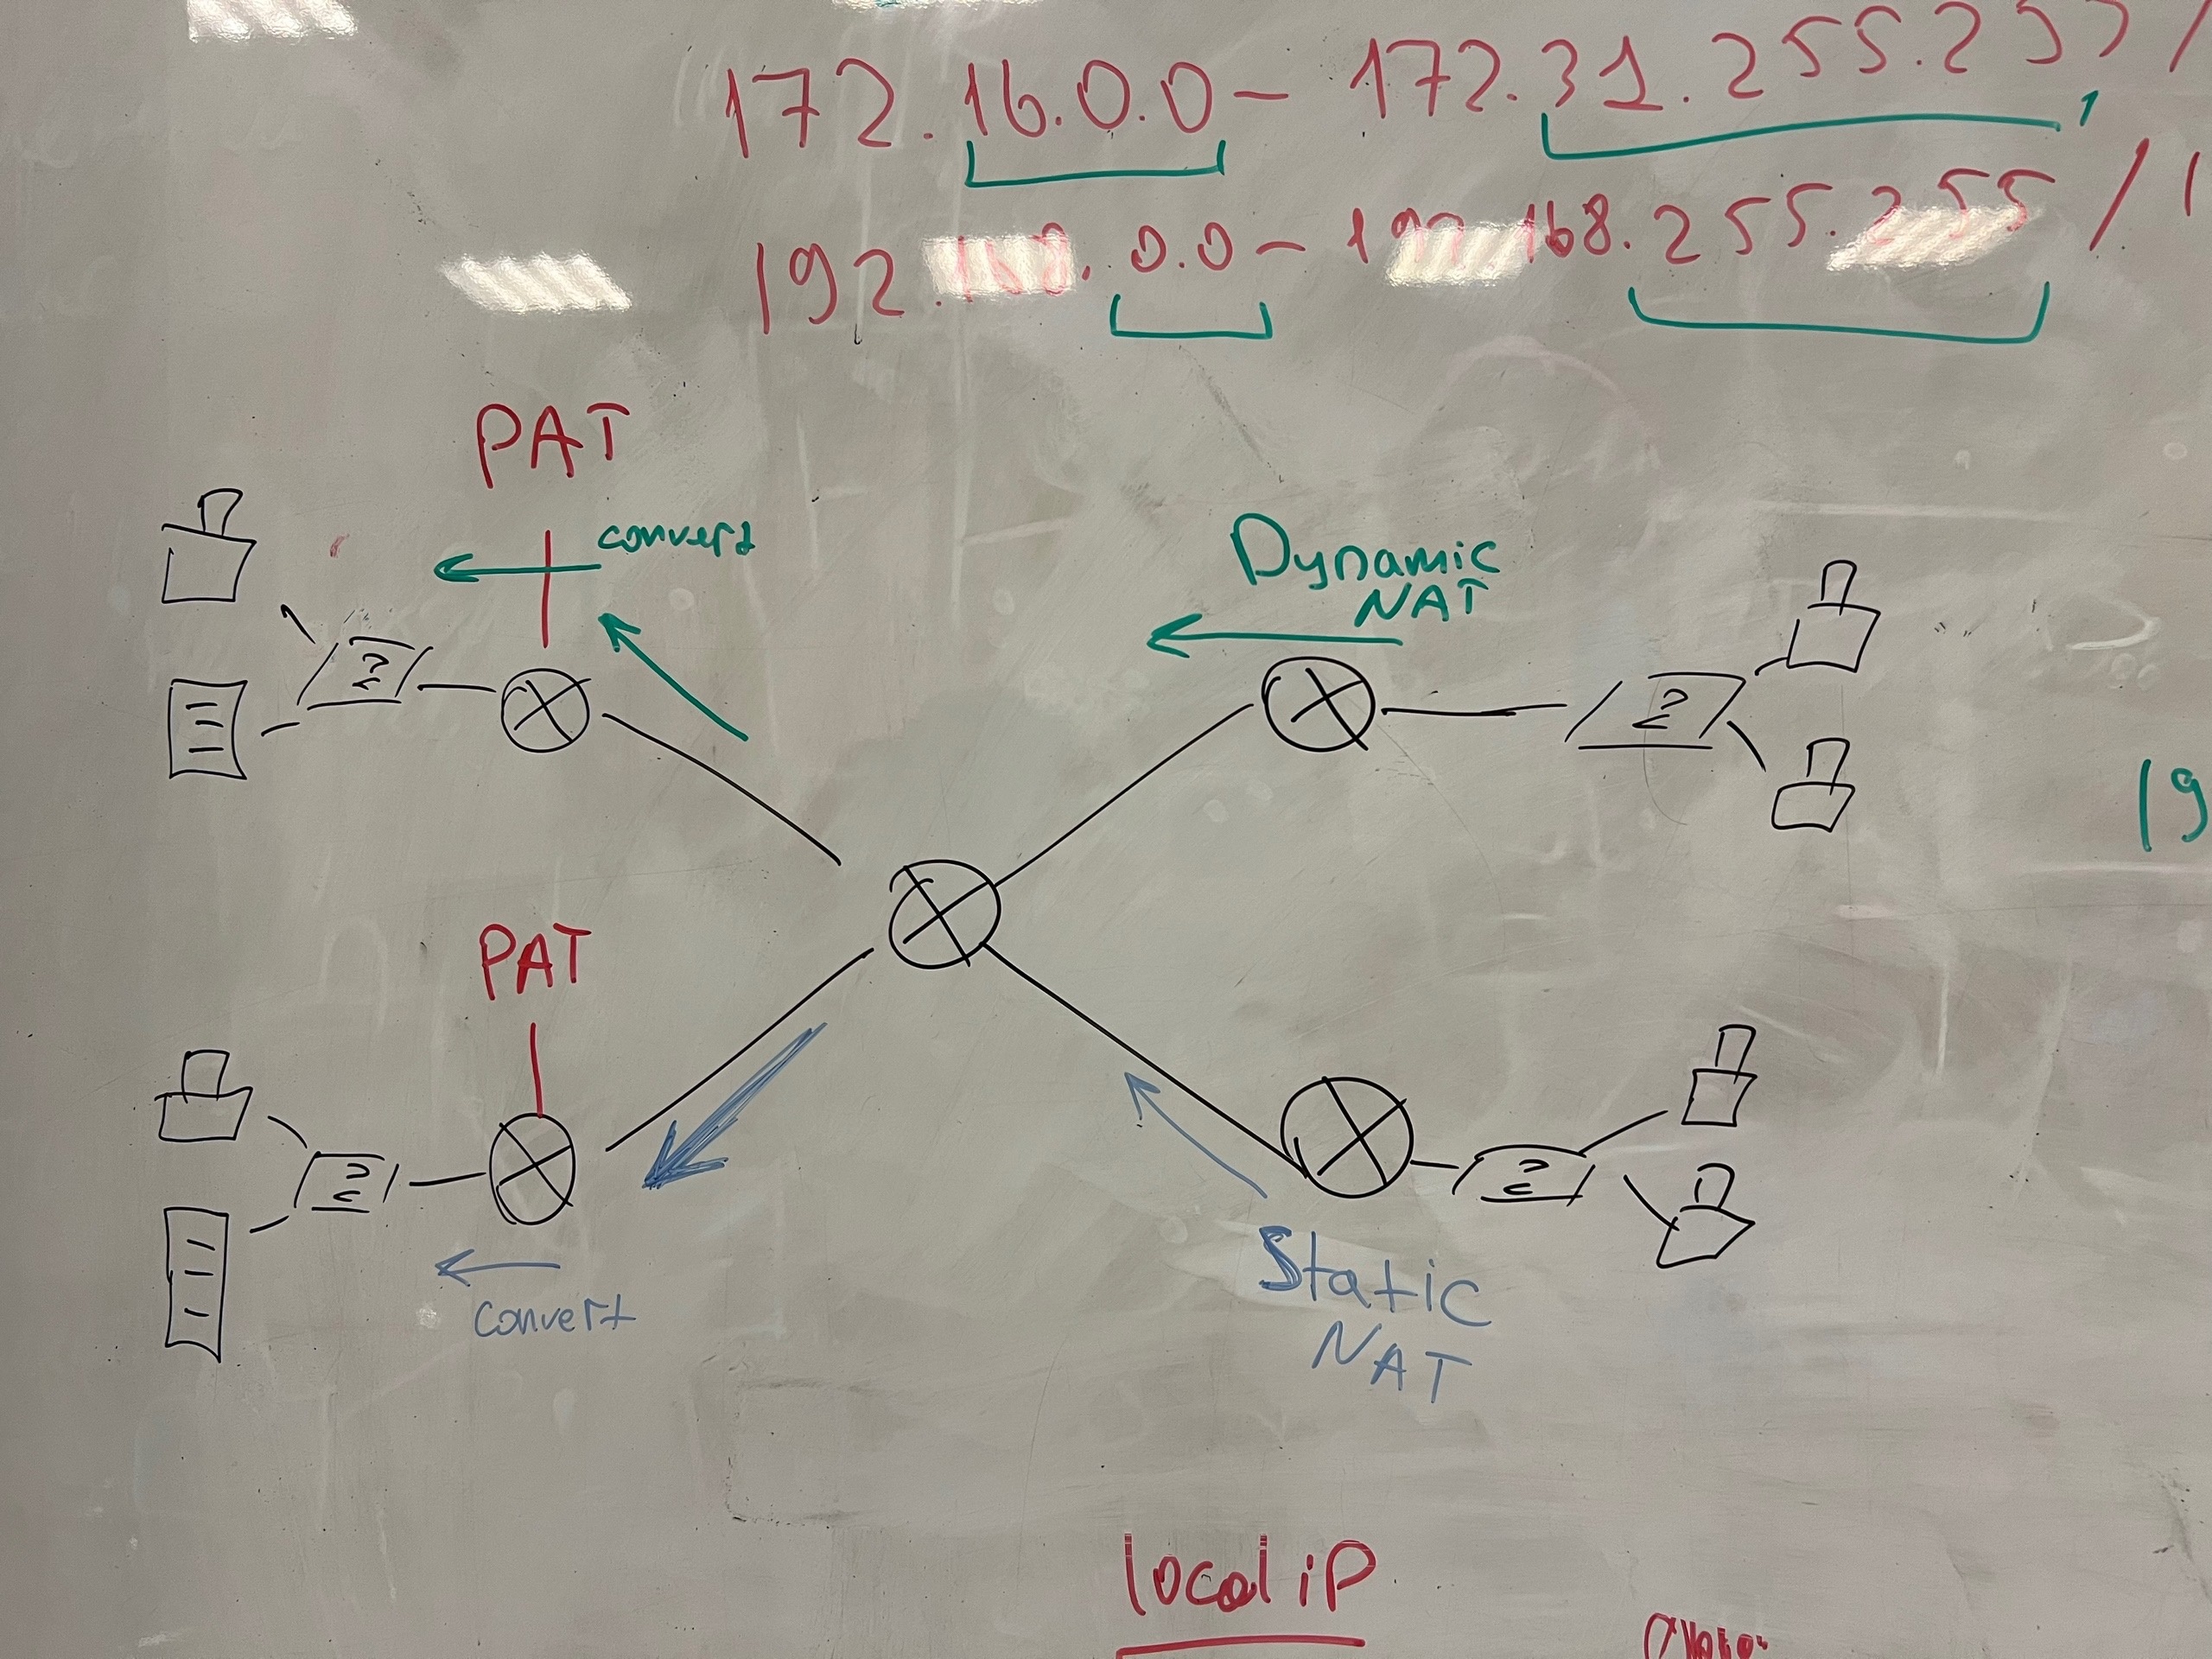 172.16.0.0 - 172.31.255.255 /
192.168.0.0 - 192.168.255.255 / 1
PAT
convert
Dynamic
NAT
2
2
19
PAT
2
2
convert
Static
NAT
local iP